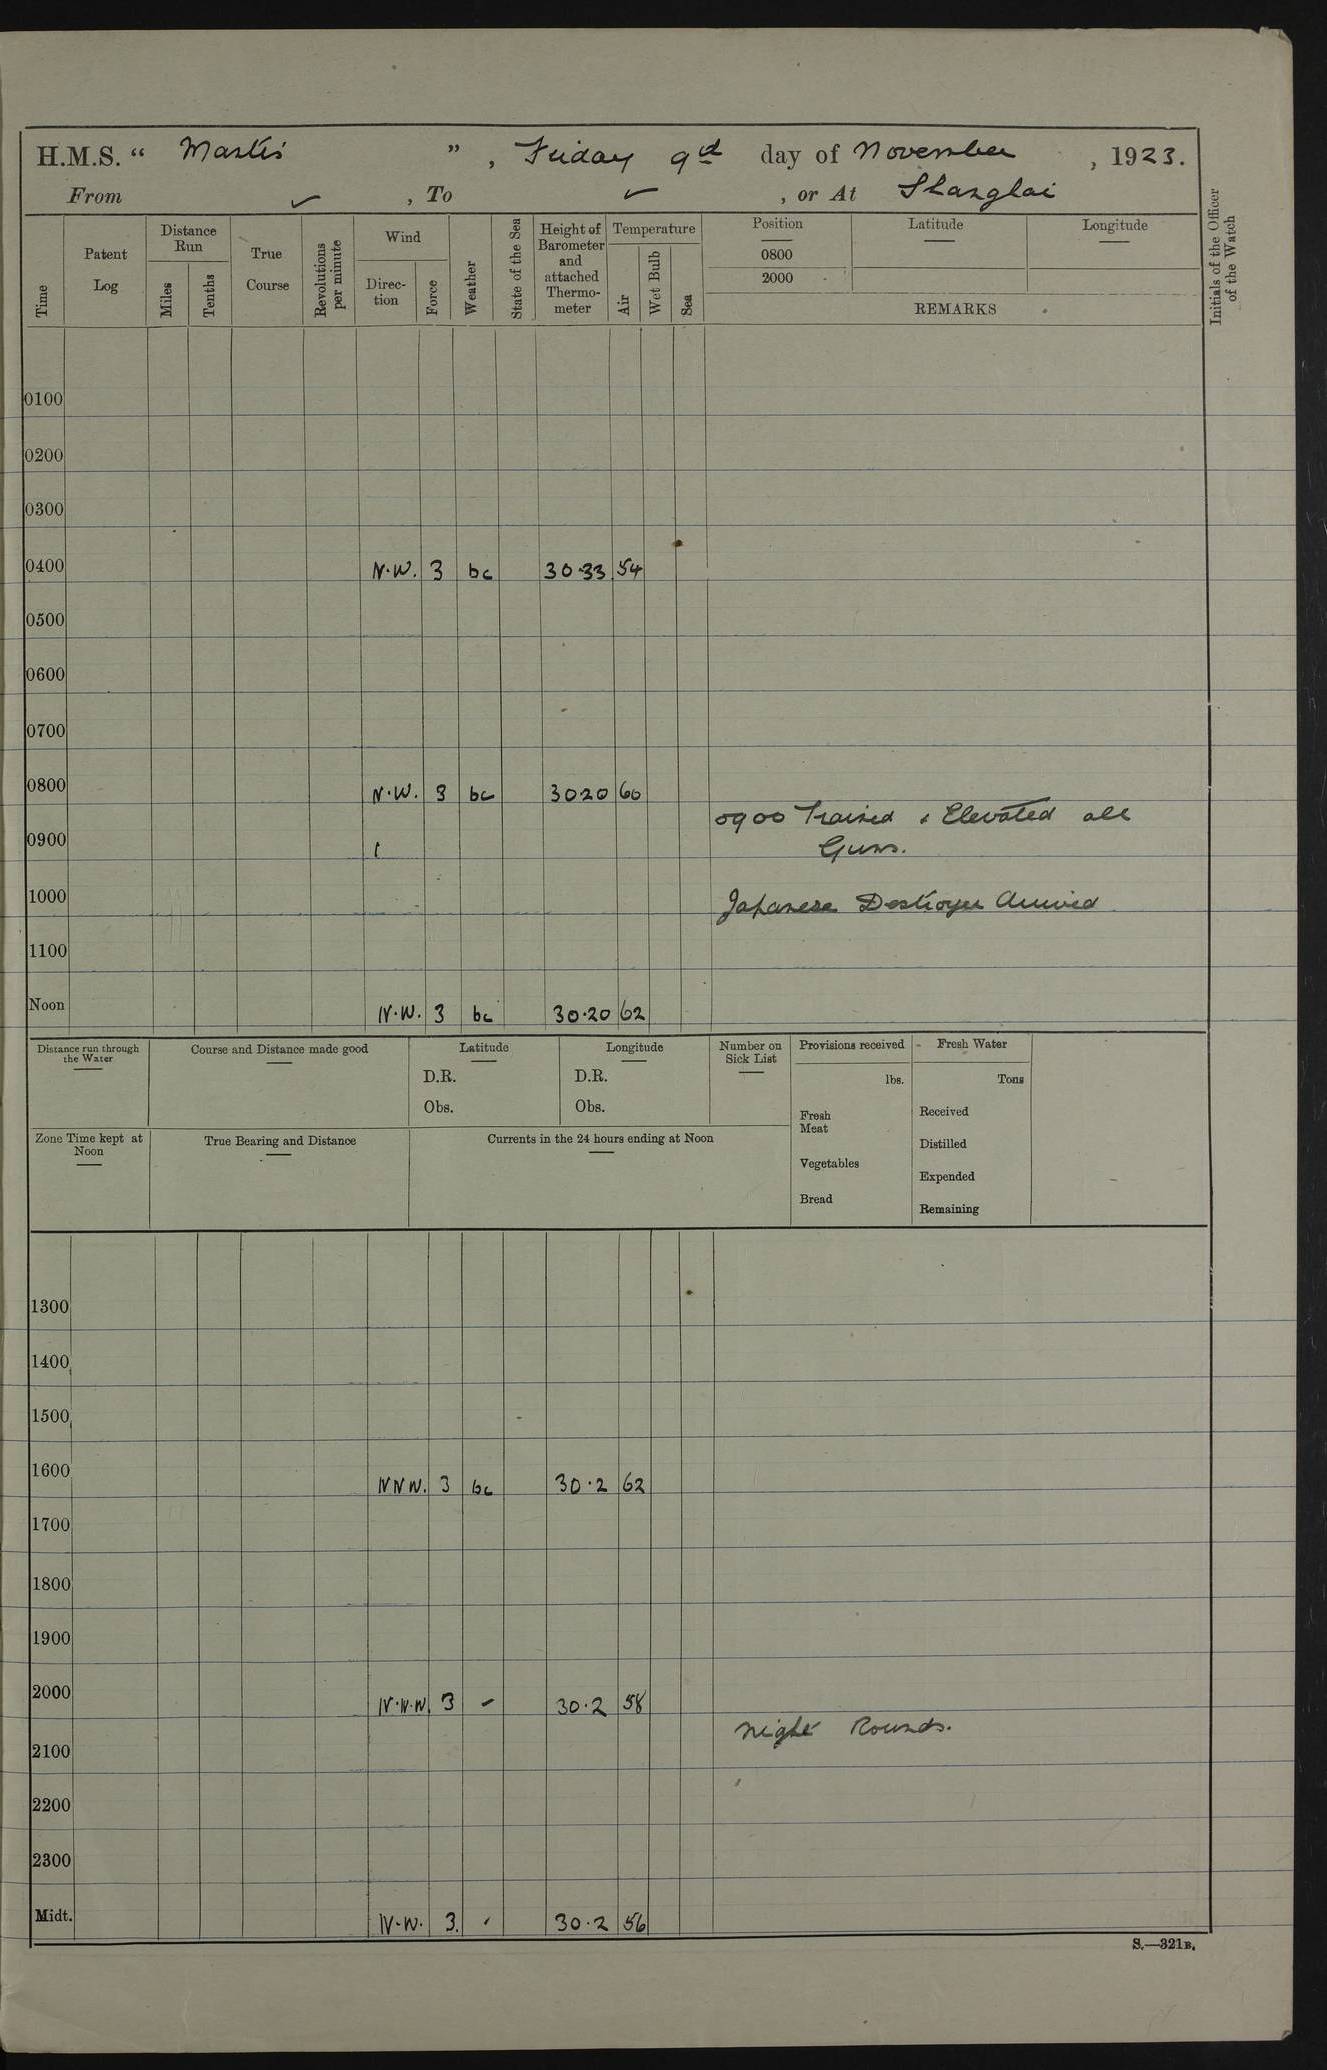 H.M.S. “ Mantis ”, Friday 9th day of November, 1923.
From ✓, To ✓, or At Shanghai
Time
Patent Log
Distance Run
Miles
Tenths
True Course
Revolutions per minute
Wind
Direction
Force
Weather
State of the Sea
Height of Barometer and attached Thermometer
Temperature
Air
Wet Bulb
Sea
Position
0800
2000
Latitude
Longitude
REMARKS
Initials of the Officer of the Watch
0100
0200
0300
0400 N.W. 3 bc 30.33 54
0500
0600
0700
0800 N.W. 3 bc 3020 60
0900 Trained & Elevated all
0900 Guns.
1000 Japanese Destroyer Arrived
1100
Noon N.W. 3 bc 30.20 62
Distance run through the Water
Course and Distance made good
Latitude
D.R.
Obs.
Longitude
D.R.
Obs.
Number on Sick List
Provisions received
lbs.
Fresh Meat
Vegetables
Bread
Fresh Water
Tons
Received
Distilled
Expended
Remaining
Zone Time kept at Noon
True Bearing and Distance
Currents in the 24 hours ending at Noon
1300
1400
1500
1600 NNW. 3 bc 30.2 62
1700
1800
1900
2000 N.N.W. 3 - 30.2 58
Night Rounds.
2100
2200
2300
Midt. N.W. 3. 30.2 56
S.—321B.